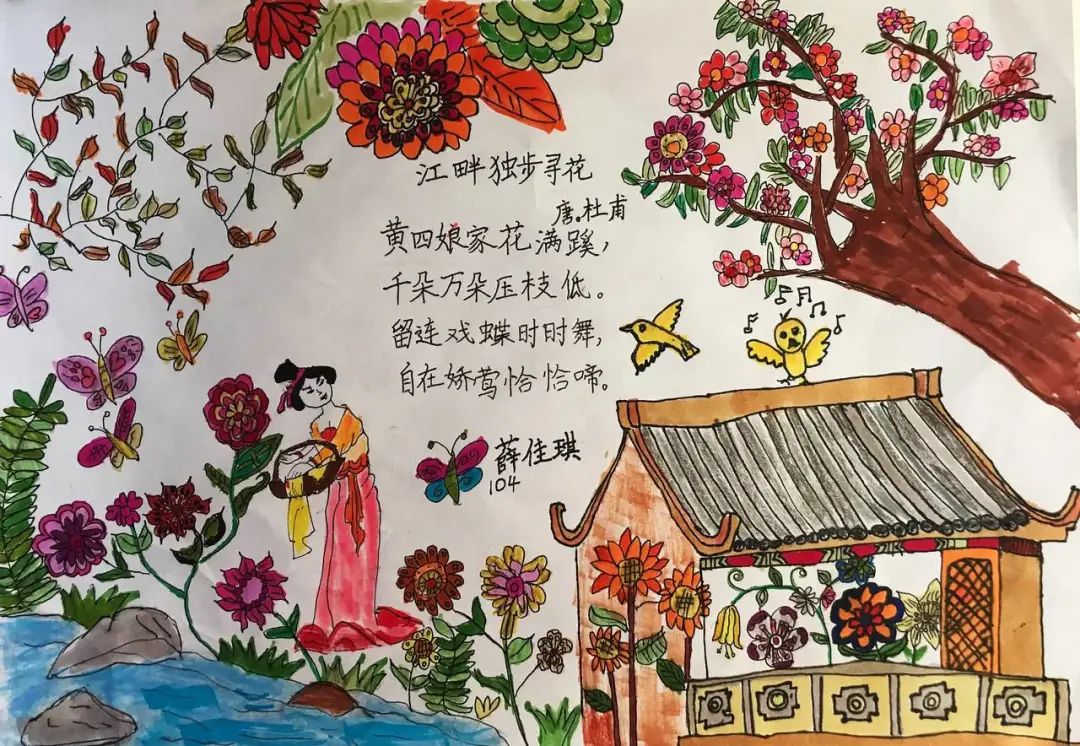 江畔独步寻花
唐。杜甫
黄四娘家花满蹊，
千朵万朵压枝低。
留连戏蝶时时舞，
自在娇莺恰恰啼。
薛佳琪
104